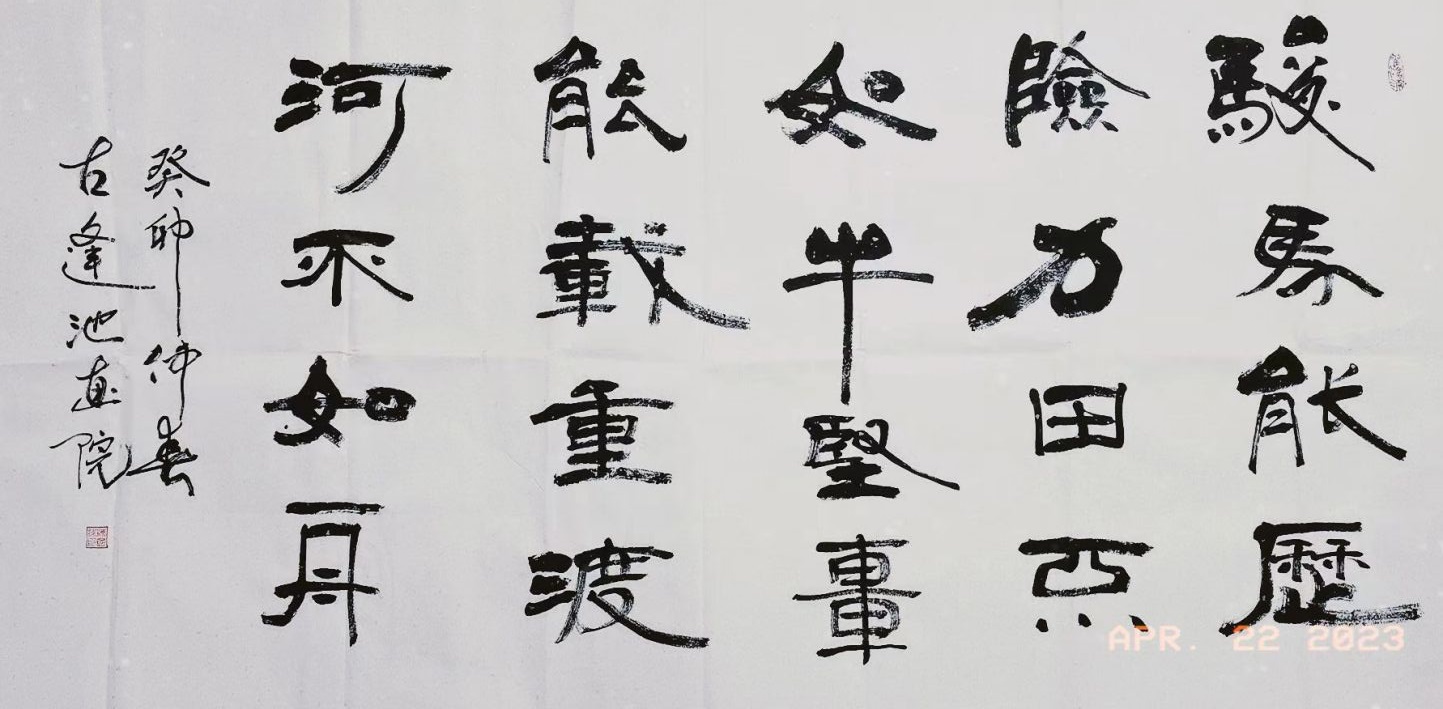 駿馬能歷
險力田不
如牛堅車
能載重渡
河不如舟
癸卯仲春
古逢池畫院
APR. 22 2023